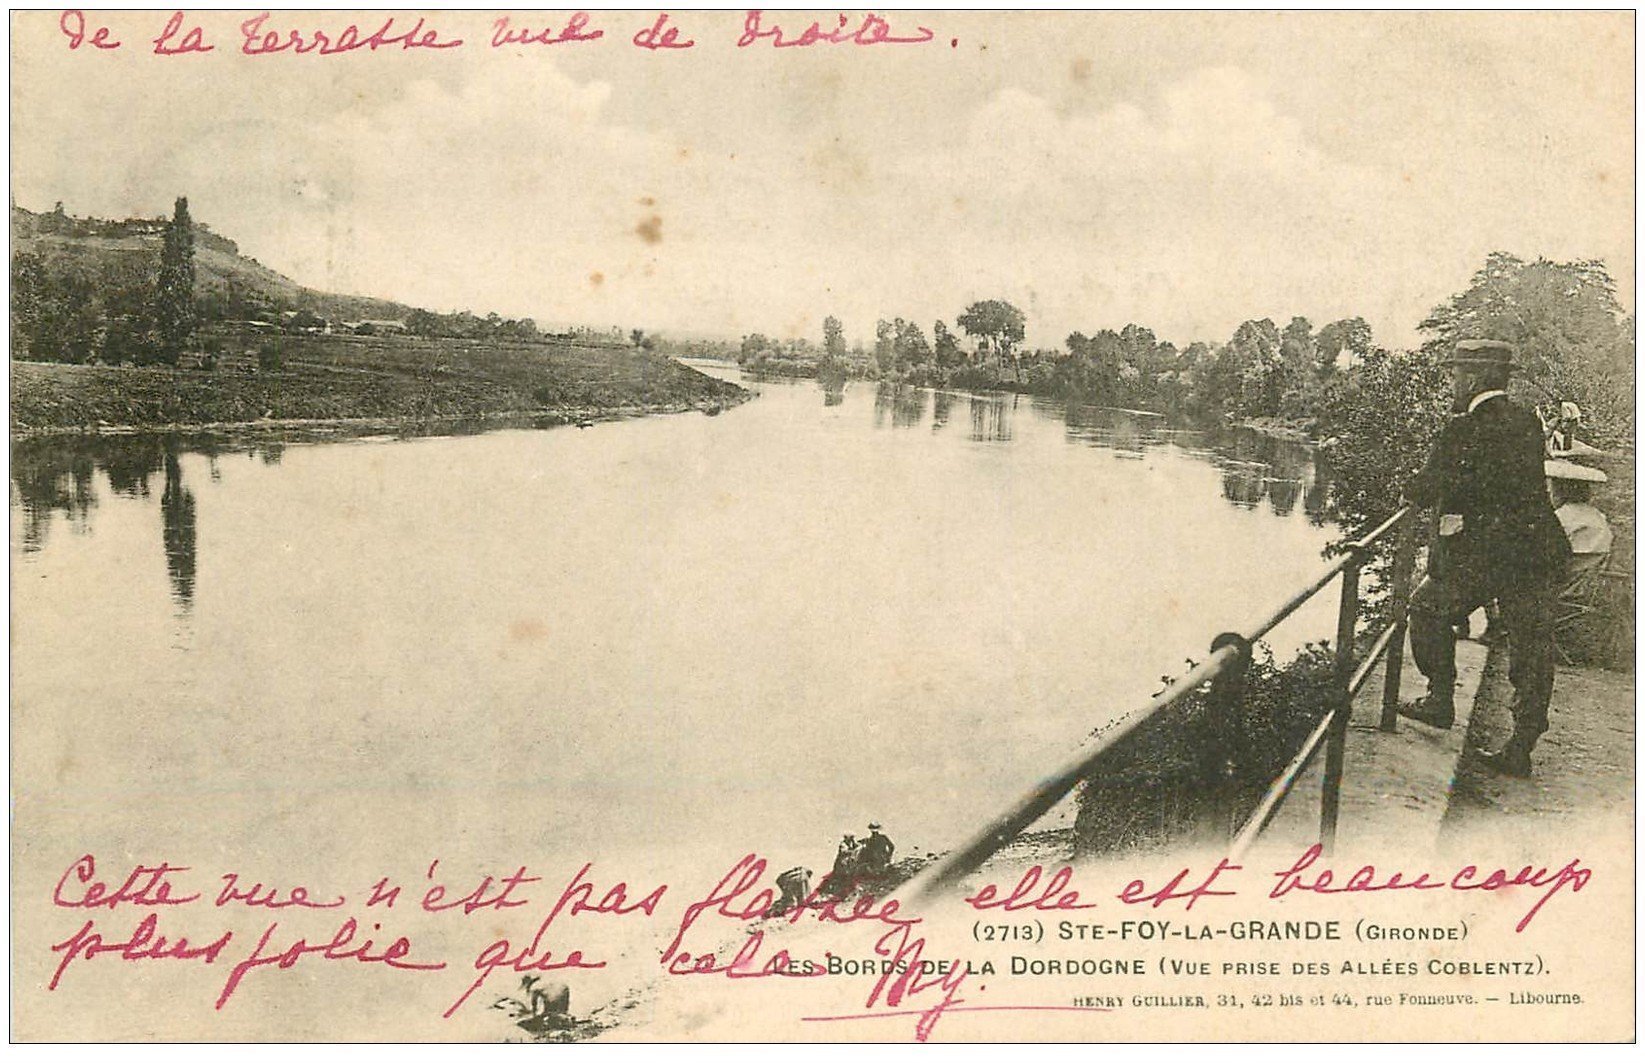 De la terrasse vue de droite.
Cette vue n'est pas flattée elle est beaucoup
plus jolie que cela My.
(2713) STE-FOY-LA-GRANDE (GIRONDE)
LES BORDS DE LA DORDOGNE (VUE PRISE DES ALLÉES COBLENTZ).
HENRY GUILLIER, 31, 42 bis et 44, rue Fonneuve. — Libourne.